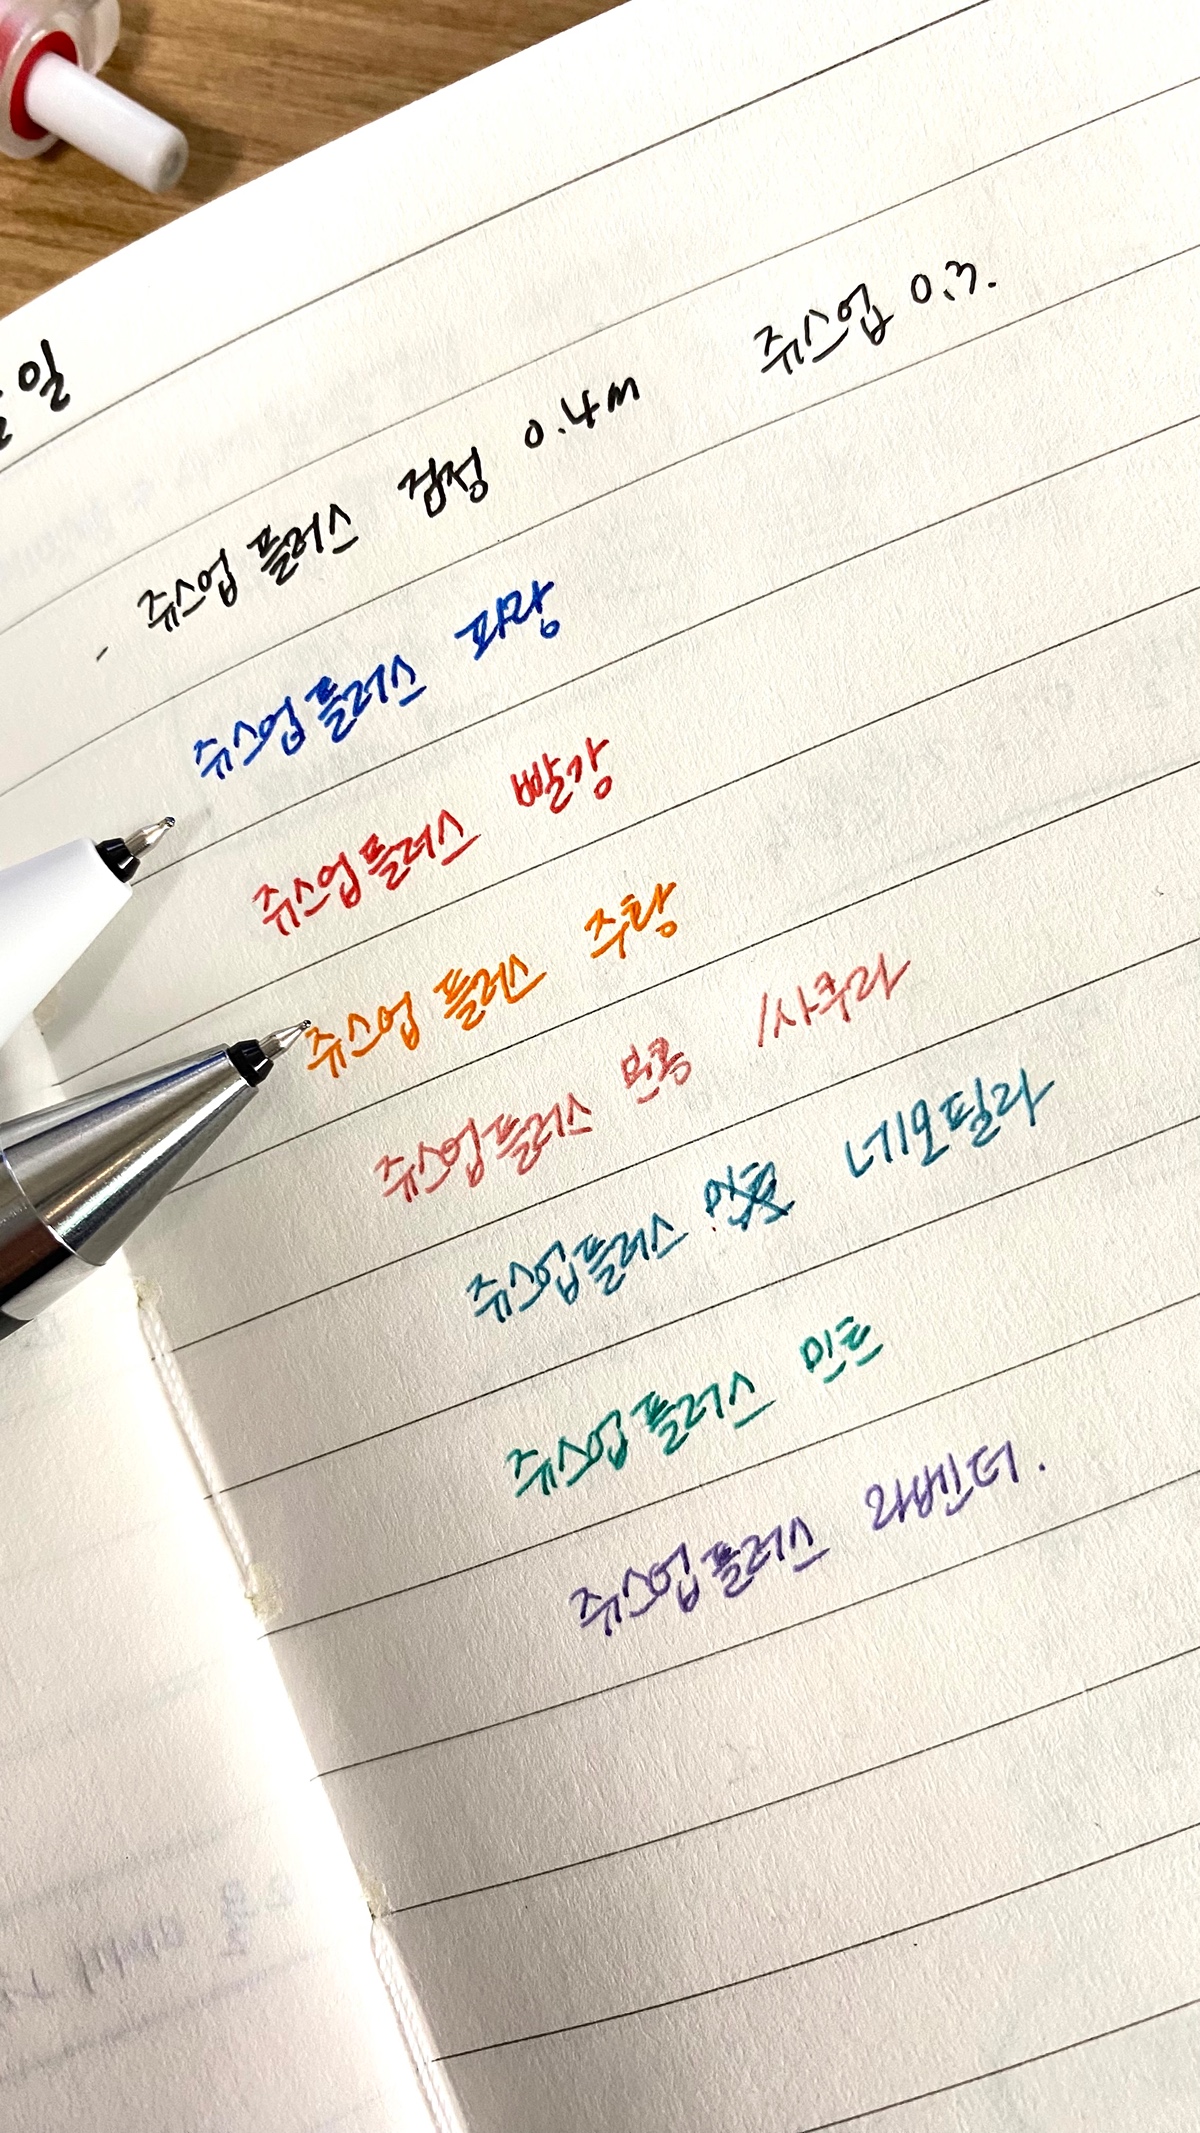 일
- 쥬스업 플러스 검정 0.4m 쥬스업 0.3.
쥬스업 플러스 파랑
쥬스업 플러스 빨강
쥬스업 플러스 주황
쥬스업 플러스 분홍 /사쿠라
쥬스업 플러스 네모필라
쥬스업 플러스 민트
쥬스업 플러스 라벤더.